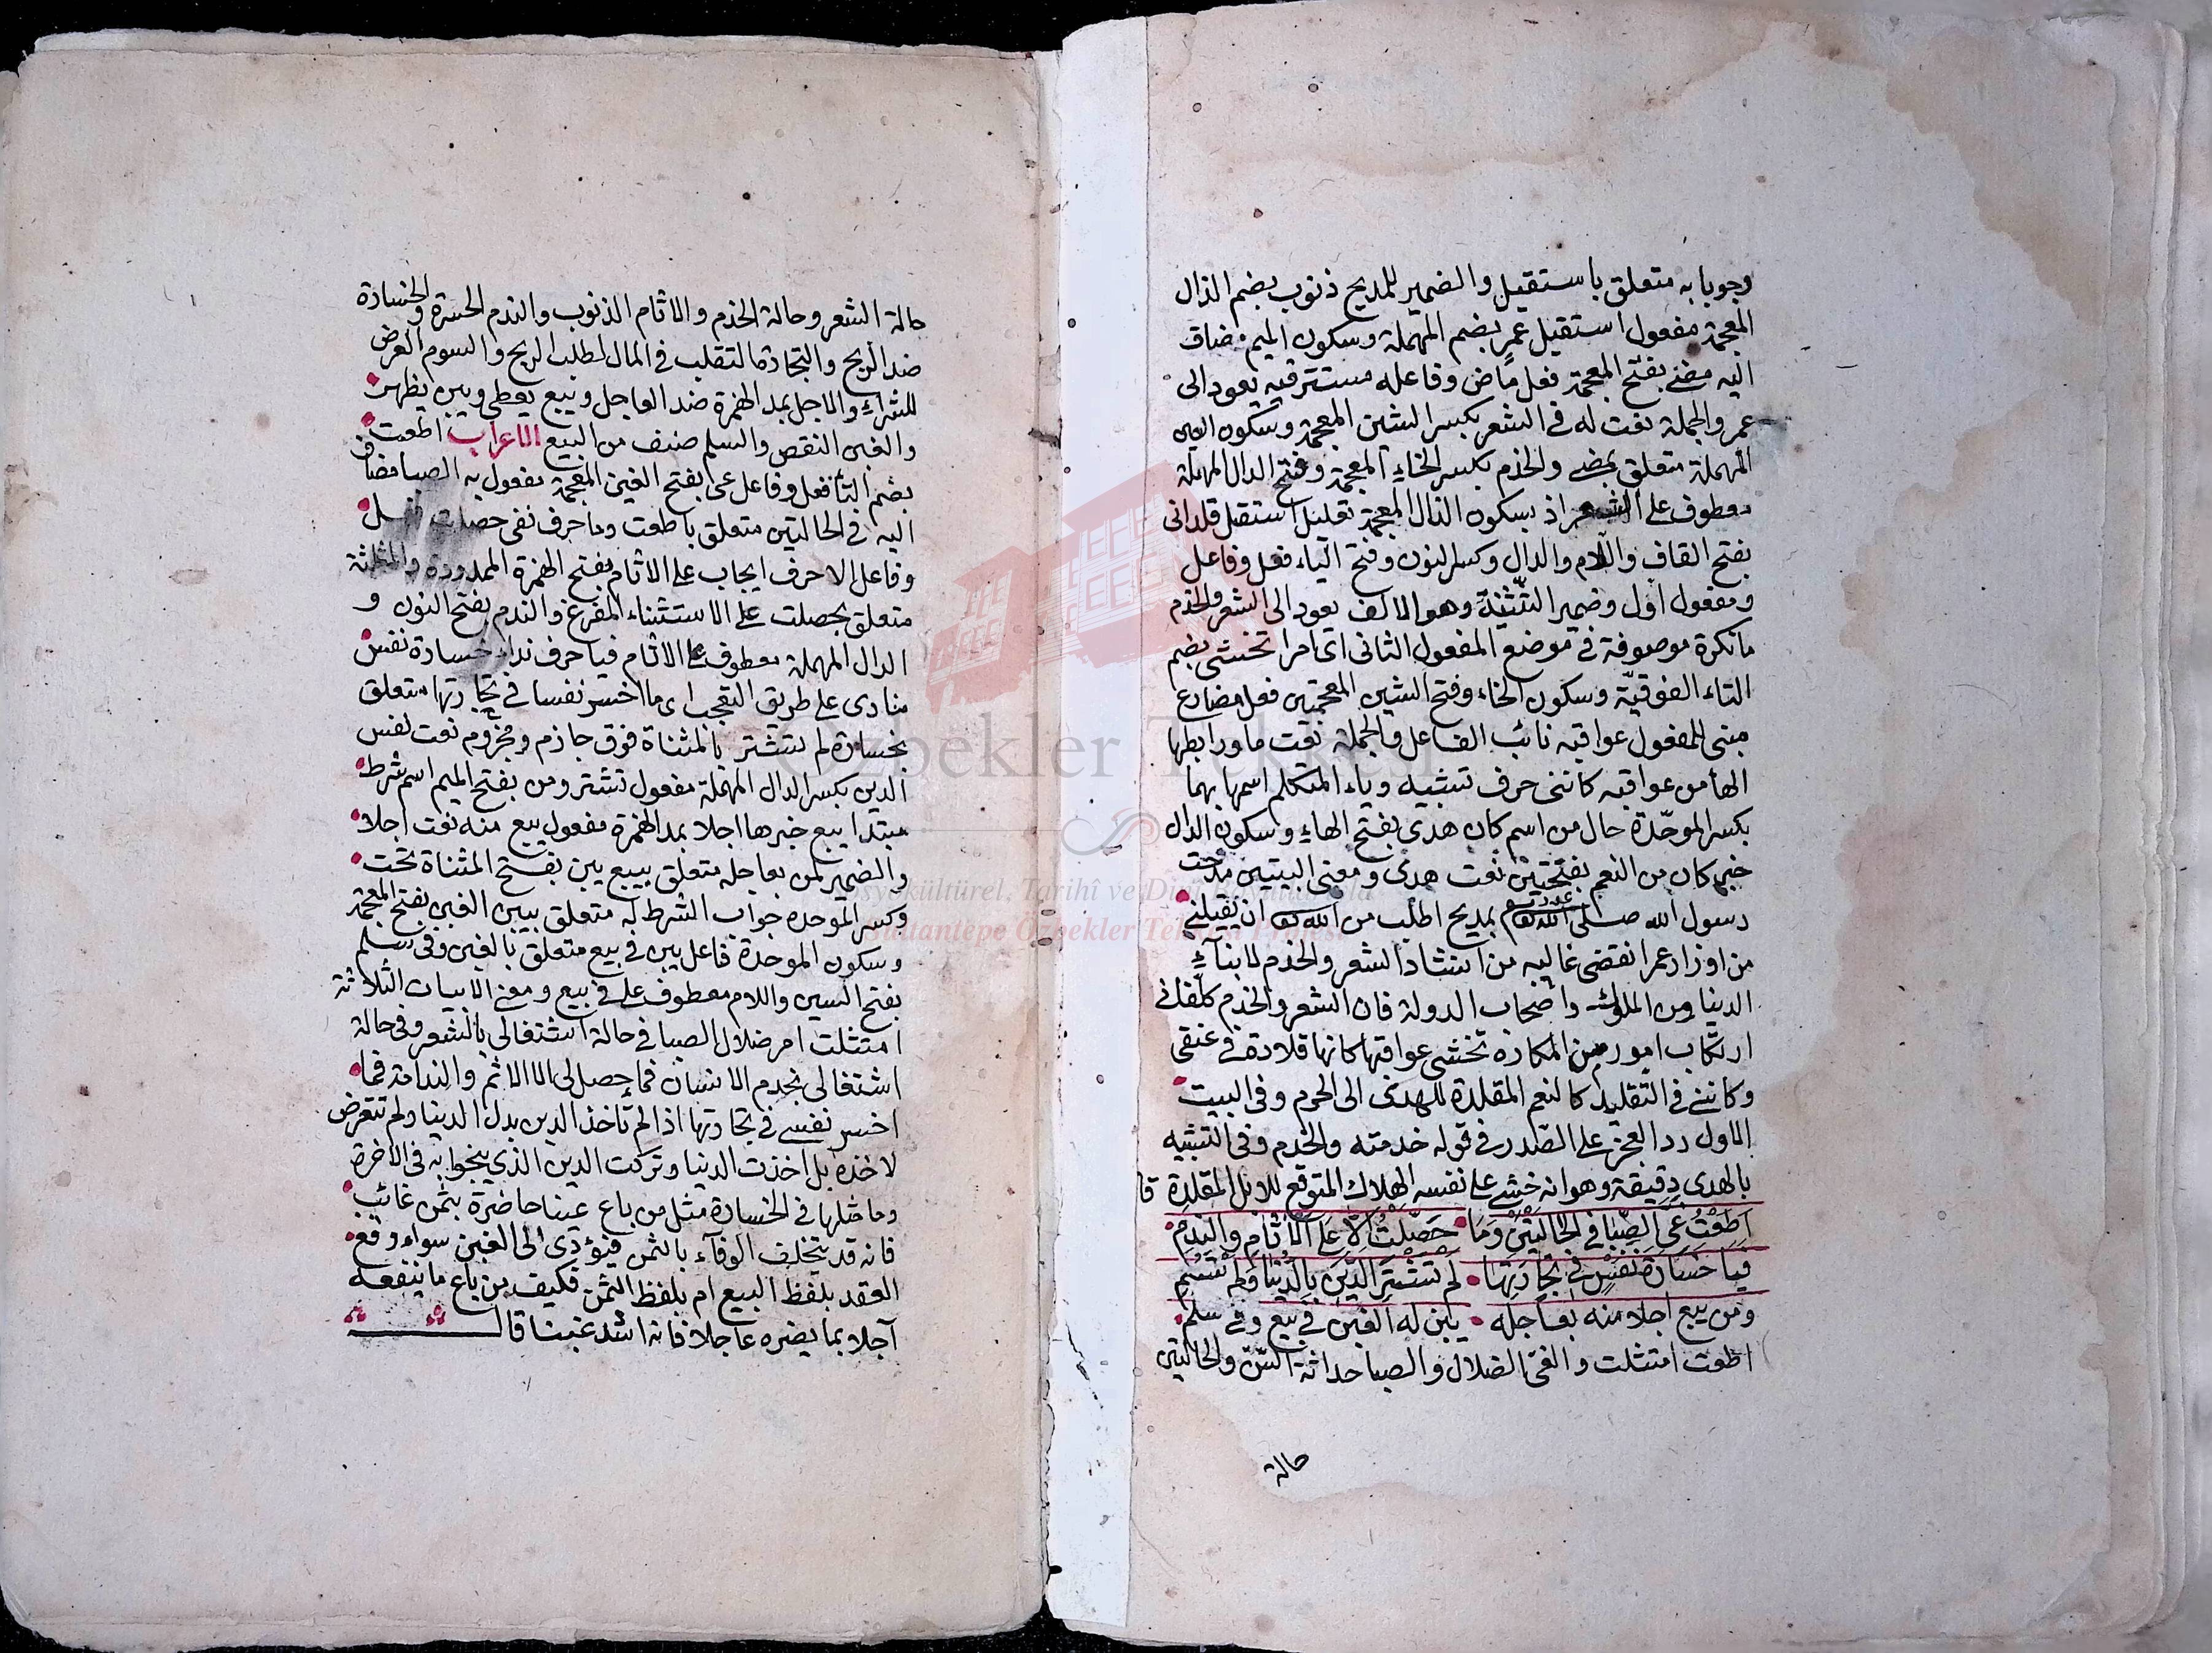 وجوبا به متعلق باستقيل والضمير للمديح ذنوب بضم الذال
المعجمة مفعول استقيل عمر بضم المهملة وسكون الميم مضاف
اليه مضى بفتح المعجمة فعل ماض وفاعله مستتر فيه يعود الى
عمر والجملة نعت له في الشعر بكسر الشين المعجمة وسكون العين
المهملة متعلق بمضى والخدم بكسر الخاء المعجمة وفتح الدال المهملة
معطوف على الشعر اذ بسكون الذال المعجمة تعليل استقيل قلدانى
بفتح القاف واللام والدال وكسر النون وفتح الياء فعل وفاعل
ومفعول اول وضمير التثنية وهو الالف يعود الى الشعر والخدم
ما نكرة موصوفة في موضع المفعول الثانى اى امرا تخشى بضم
التاء الفوقية وسكون الخاء وفتح الشين المعجمتين فعل مضارع
مبنى للمفعول عواقبه نائب الفاعل والجملة نعت ما ورابطها
الهأ من عواقبه كاننى حرف تشبيه وياء المتكلم اسمها بهما
بكسر الموحدة حال من اسم كان هدى بفتح الهاء وسكون الدال
خبر كان من النعم بفتحتين نعت هدى ومعنى البيتين مدحت
رسول الله صلى الله عليه وسلم بمديح اطلب من الله تعالى ان يقيلنى
من اوزار عمر انقضى غالبه من انشاد الشعر والخدم لابناء
الدنيا من الملوك واصحاب الدولة فان الشعر والخدم كلفانى
ارتكاب امور من المكاره تخشى عواقبها كانها قلادة في عنقى
وكاننى في التقليد كالنعم المقلدة للهدى الى الحرم وفى البيت
الاول رد العجز على الصدر في قوله خدمته والخدم وفى التشبيه
بالهدى دقيقة وهو انه خشى على نفسه الهلاك المتوقع للابل المقلدة قا
اَطَعْتُ غَىَّ الصِّبَا في الْحَالَتَيْنِ وَمَا حَصَّلْتُ اِلَّا عَلَى الْآثَامِ وَالنَّدَمِ
فَيَا خَسَارَةَ نَفْسٍ فِي تِجَارَتِهَا لَمْ تَشْتَرِ الدِّيْنَ بِالدُّنْيَا وَلَمْ تَسُمِ
ومن يبع اجلا منه بعاجله يبن له الغبن في بيع وفي سلم
اطعت امتثلت والغى الضلال والصبا حداثة السن والحالتين
حالة
حالة الشعر وحالة الخدم والاثام الذنوب والندم الحسرة والخسارة
ضد الربح والتجارة التقلب في المال لطلب الربح والسوم العرض
للشراء والاجل بمد الهمزة ضد العاجل ويبع يعطى ويبن يظهر
والغبن النقص والسلم صنف من البيع الاعراب اطعت
بضم التأ فعل وفاعل غى بفتح الغين المعجمة مفعول به الصبا مضاف
اليه في الحالتين متعلق باطعت وما حرف نفى حصلت فعل
وفاعل الا حرف ايجاب على الاثام بفتح الهمزة الممدودة والمثلثة
متعلق بحصلت على الاستثناء المفرغ والندم بفتح النون و
الدال المهملة معطوف على الاثام فيا حرف نداء خسارة نفس
منادى على طريق التعجب اى ما اخسر نفسا في تجارتها متعلق
بخسارة لم تشتر بالمثناة فوق جازم ومجزوم نعت لنفس
الدين بكسر الدال المهملة مفعول تشتر ومن بفتح الميم اسم شرط
مبتدا يبع خبرها اجلا بمد الهمزة مفعول يبع منه نعت اجلا
والضمير لمن بعاجله متعلق بيبع يبن بفتح المثناة تحت
وكسر الموحدة جواب الشرط له متعلق بيبن الغبن بفتح المعجمة
وسكون الموحدة فاعل يبن في بيع متعلق بالغبن وفى سلم
بفتح السين واللام معطوف على في بيع ومعنى الابيات الثلاثة
امتثلت امر ضلال الصبا في حالة اشتغالى بالشعر وفى حالة
اشتغالى بخدم الانسان فما حصل لى الا الاثم والندامة فما
اخسر نفسى في تجارتها اذ الم تأخذ الدين بدل الدنيا ولم تتعرض
لاخذه بل اخذت الدنيا وتركت الدين الذى ينجوا به في الاخرة
وما مثلها في الخسارة مثل من باع عينا حاضرة بثمن غائب
فانه قد يتخلف الوفاء بالثمن فيؤدى الى الغبن سواء وقع
العقد بلفظ البيع ام بلفظ الثمن فكيف بمن باع ما ينفعه
آجلا بما يضره عاجلا فانه اشد غبنا قال
Özbekler Tekkesi
Sosyokültürel, Tarihî ve Dinî
Sultantepe Özbekler Tekkesi Projesi